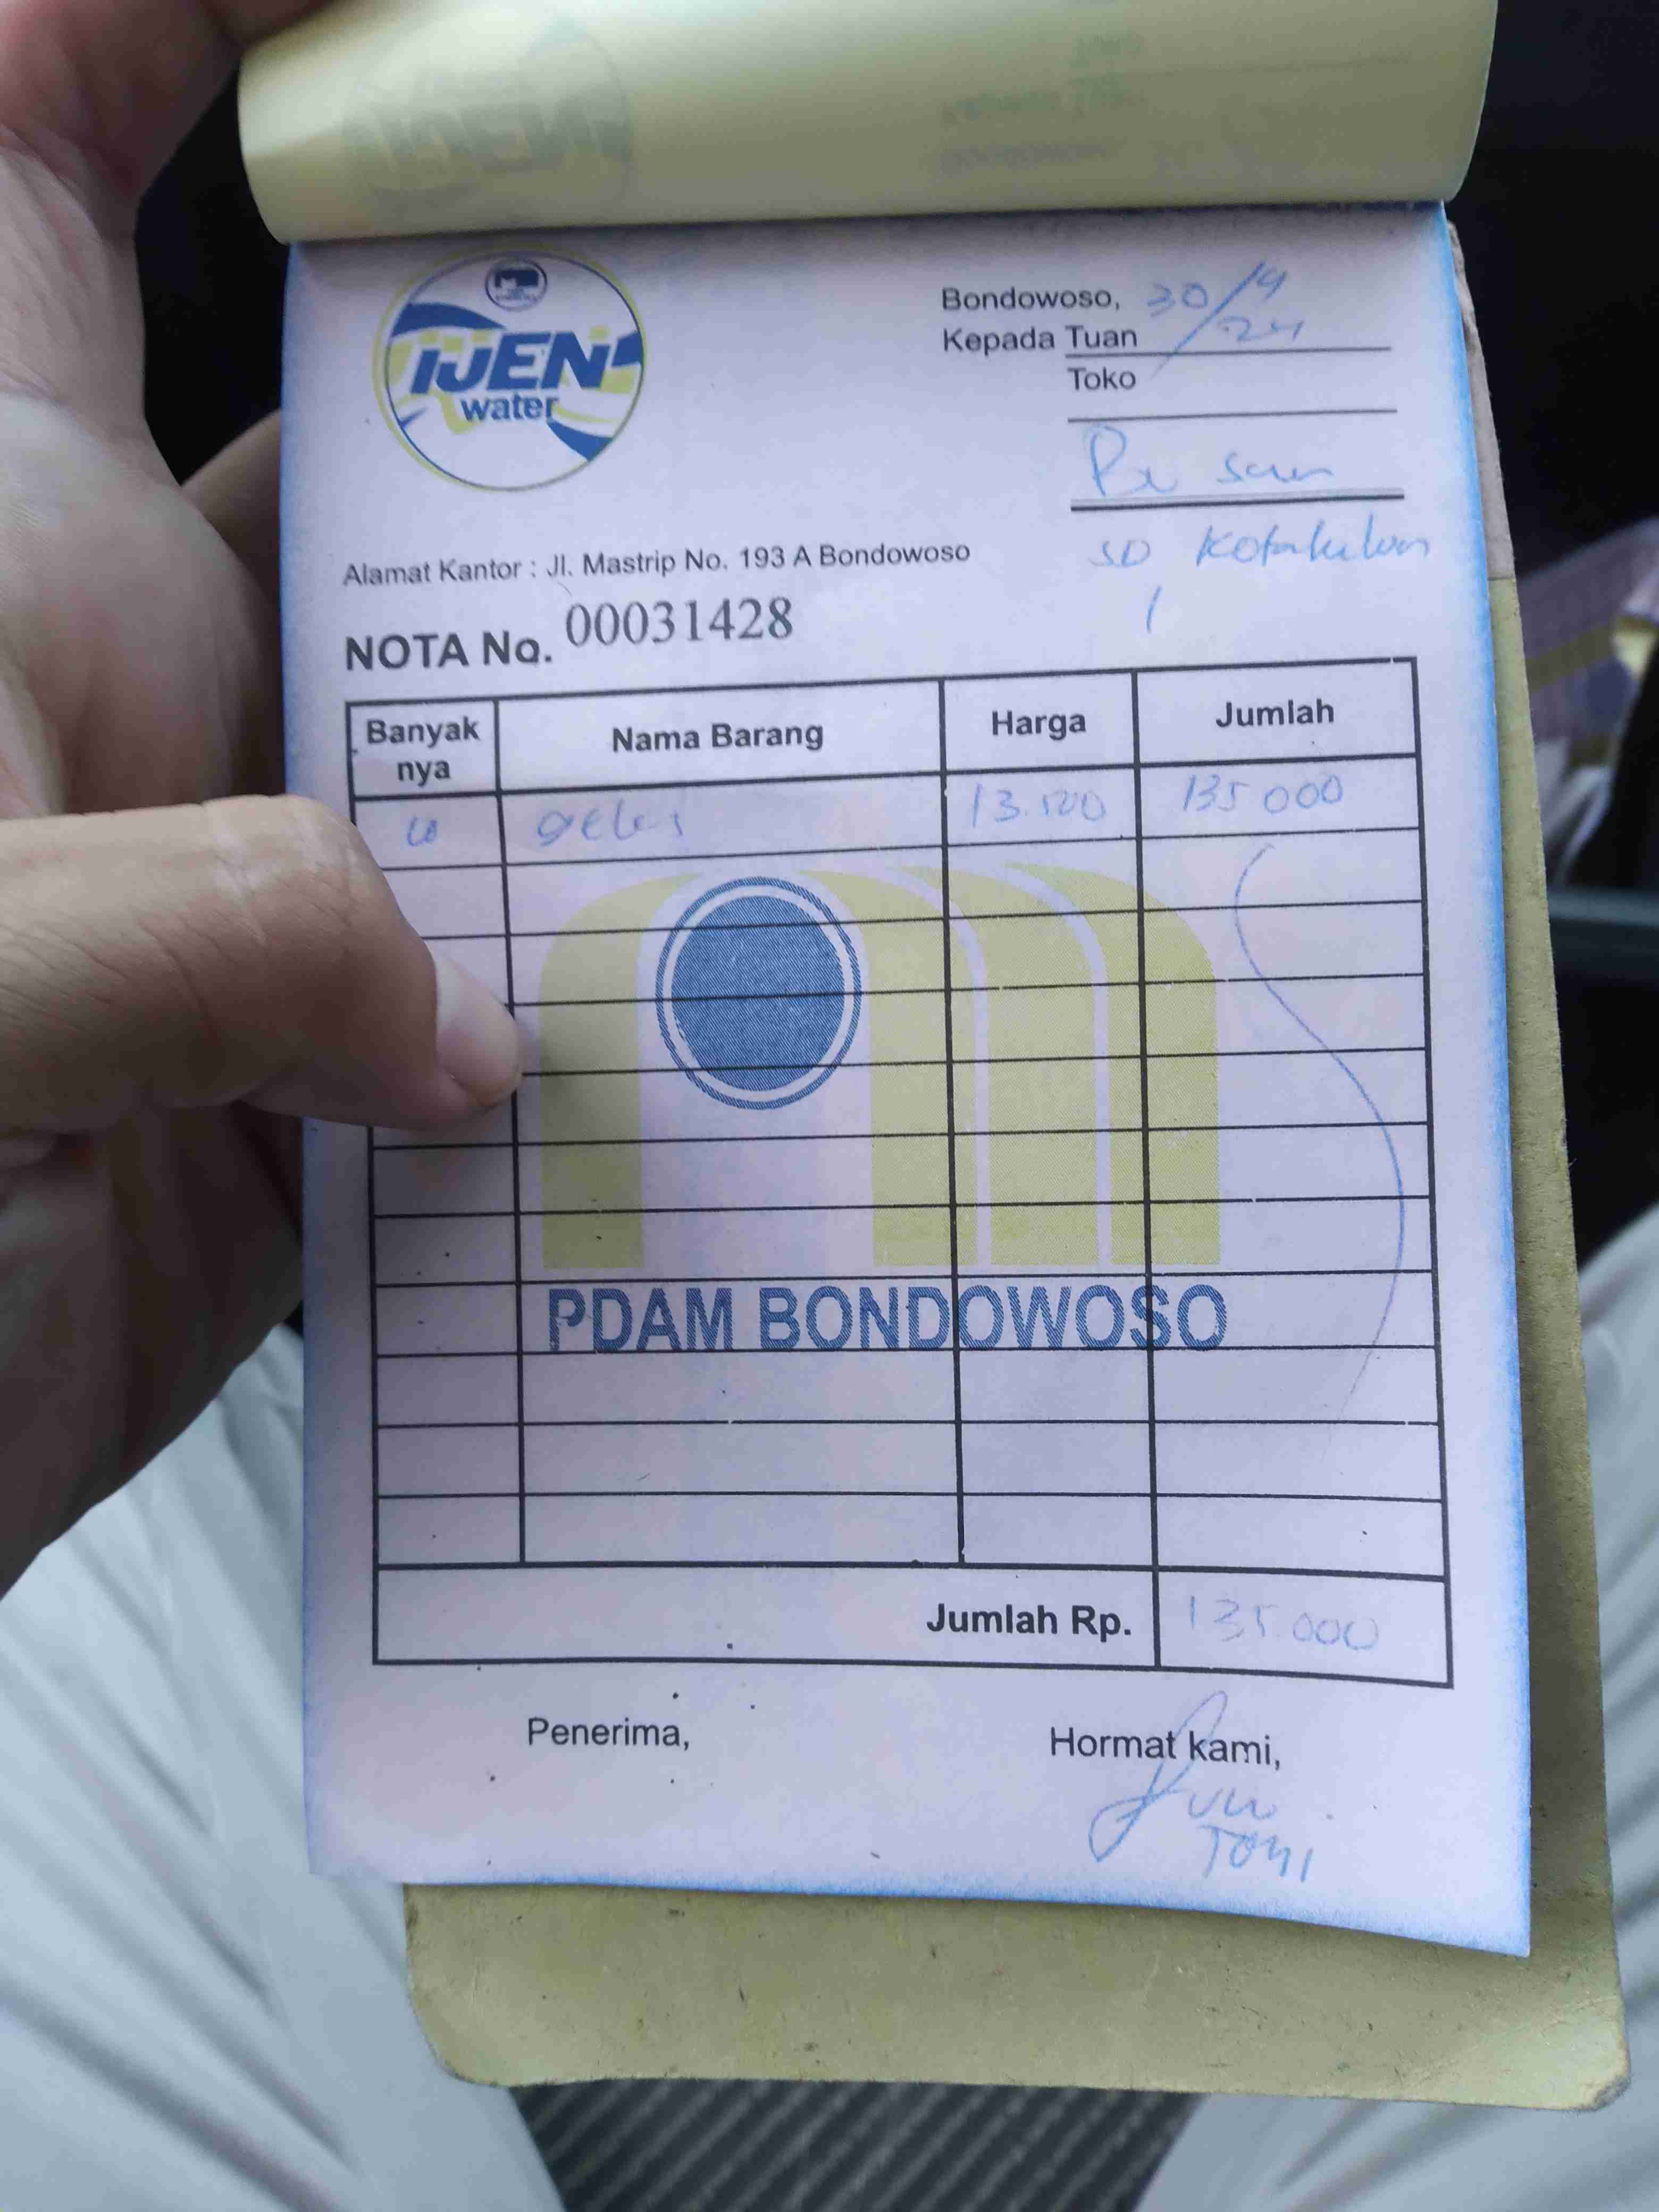 IJEN
water
Bondowoso, 30/4/24
Kepada Tuan
Toko
SD Kotakulon
1
Alamat Kantor : Jl. Mastrip No. 193 A Bondowoso
NOTA No. 00031428
Banyak nya Nama Barang Harga Jumlah
10 gelas 13.500 135 000
PDAM BONDOWOSO
Jumlah Rp. 135.000
Penerima, Hormat kami,